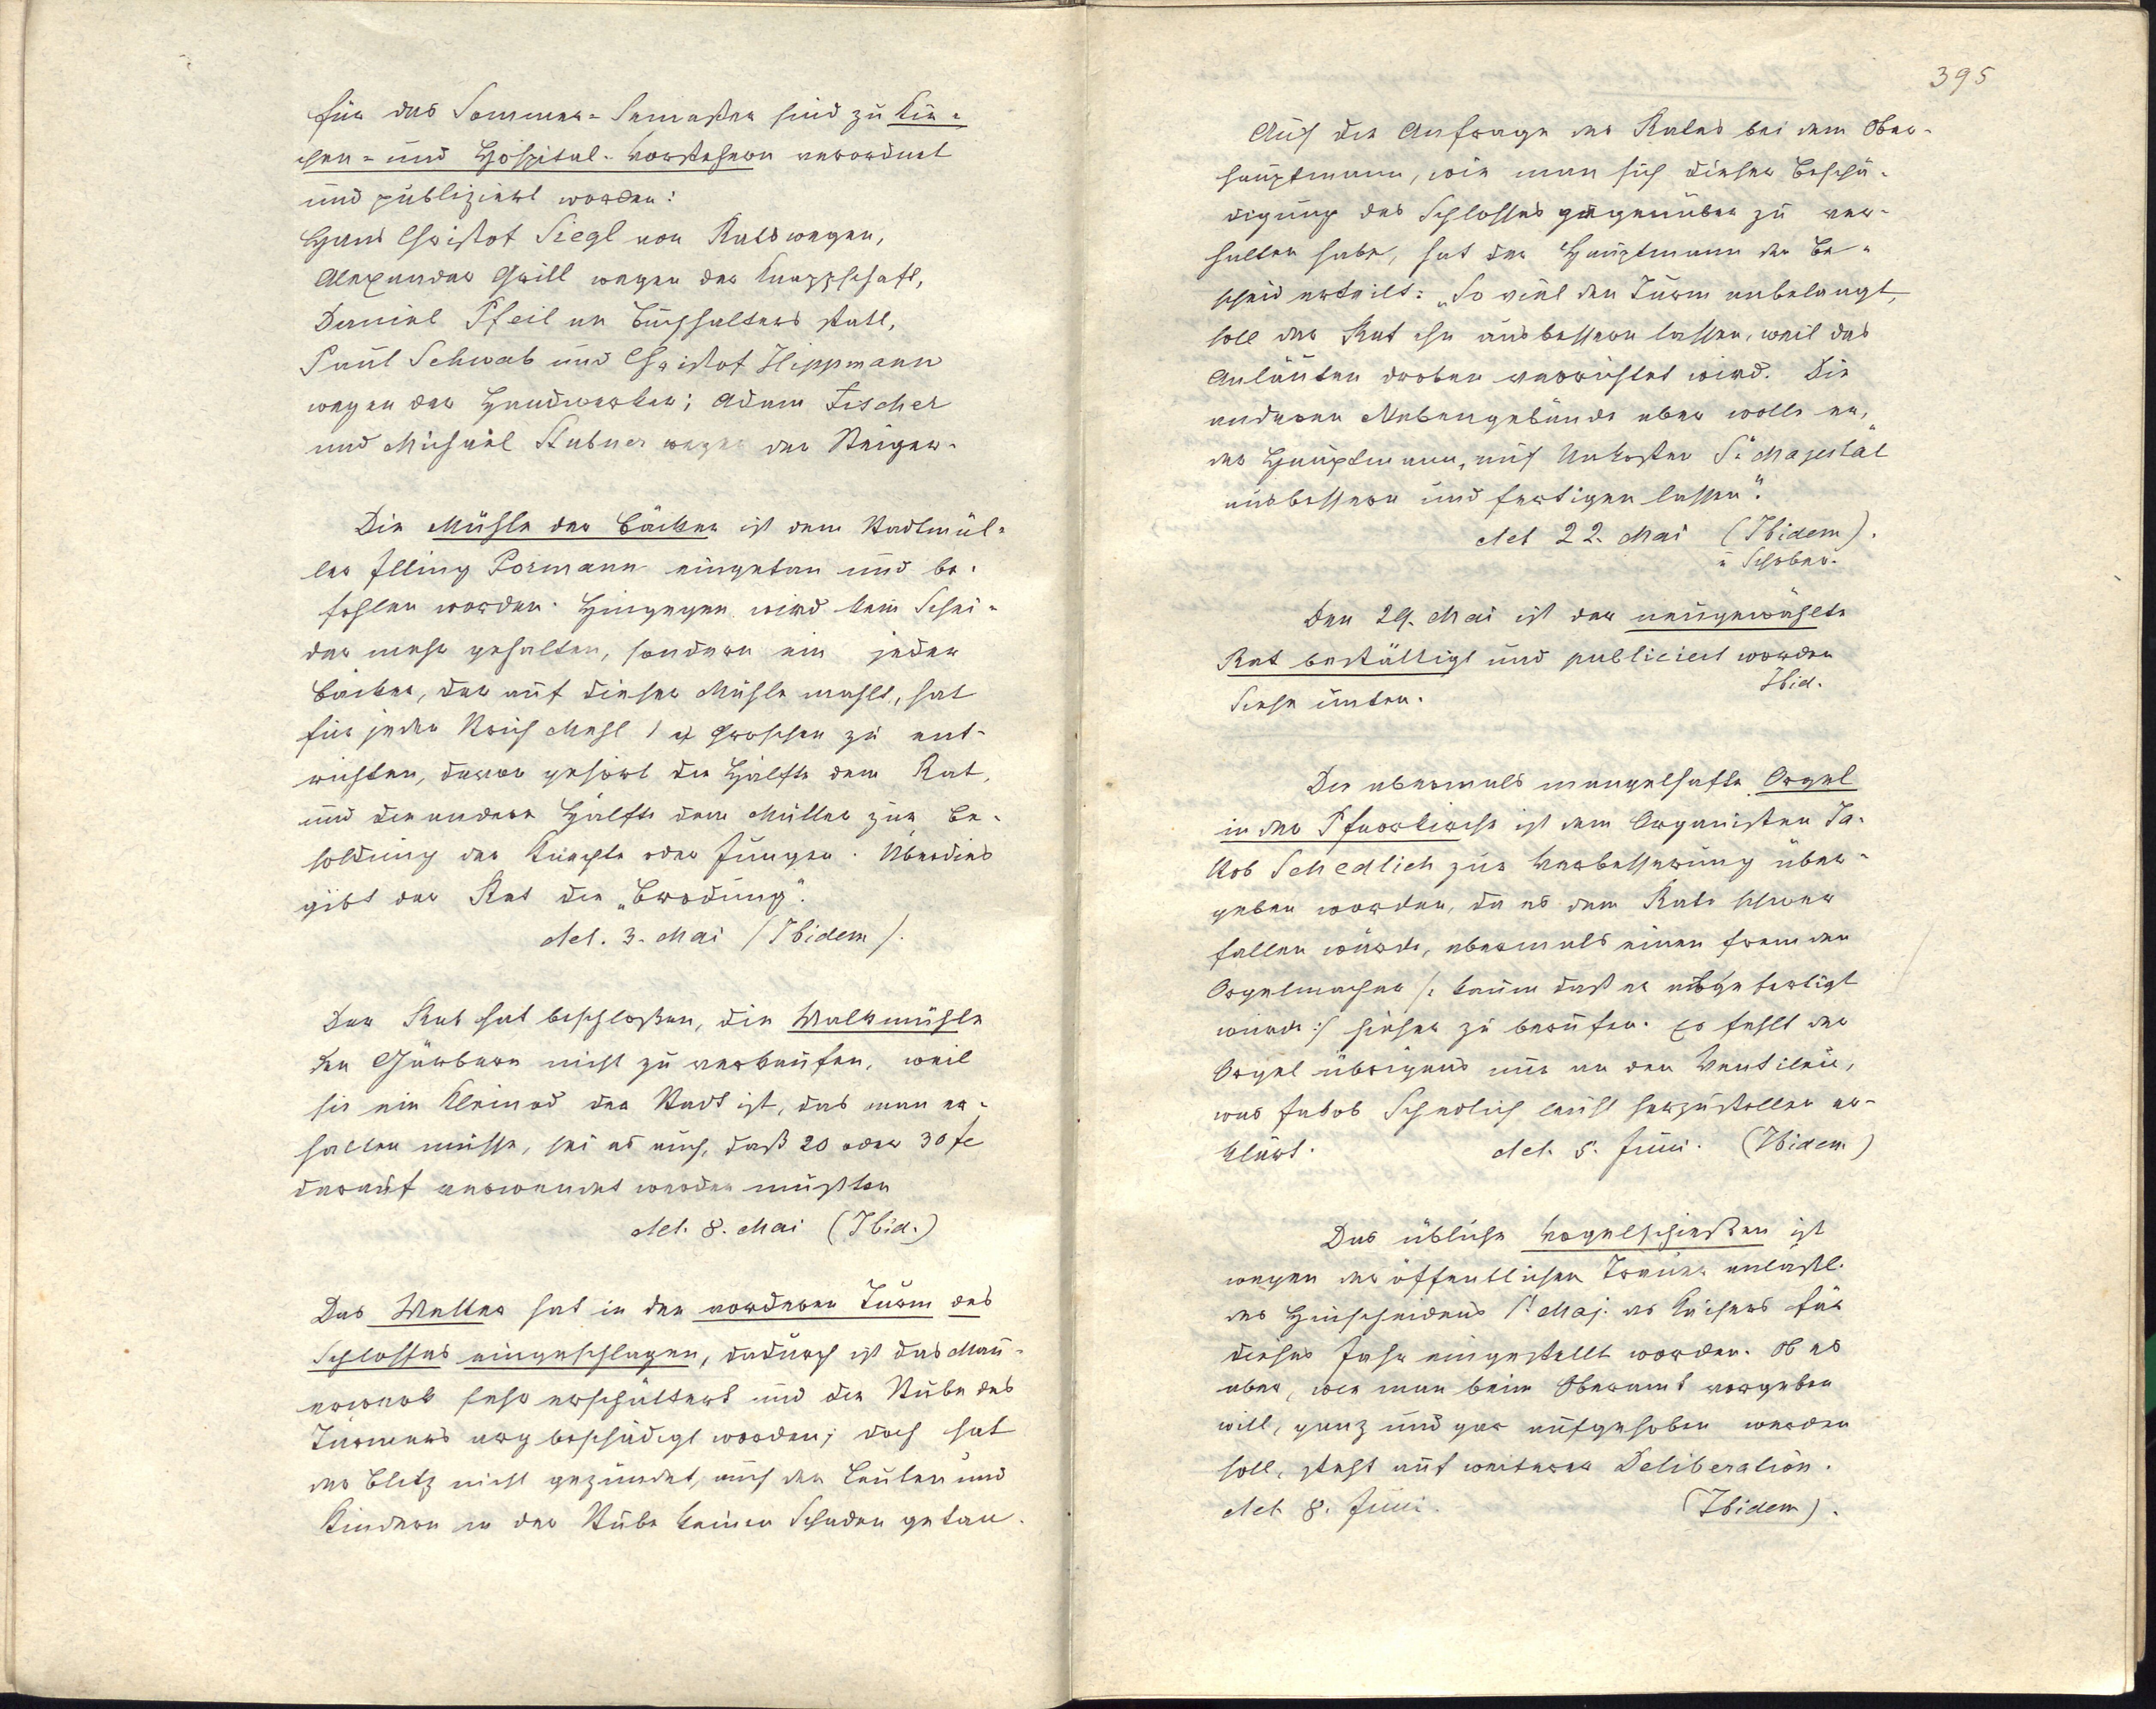 für das Sommer-Semester sind zu Kir-
chen- und Hospital-Vorstehern verordnet
und publiziert worden:
Hans Christof Siegl von Rats wegen,
Alexander Grill wegen der Knappschaft,
Daniel Pfeil an Buchhalters statt,
Paul Schwab und Christof Hippmann
wegen der Handwerker; Adam Fischer
und Michael Stubner wegen der Steiger.
Die Mühle der Bäcker ist dem Stadtmül-
ler Illing Pormann eingetan und be-
fohlen worden. Hingegen wird kein Schei-
der mehr gehalten, sondern ein jeder
Bäcker, der auf dieser Mühle mahlt, hat
für jeden Strich Mehl 1 Groschen zu ent-
richten, davon gehört die Hälfte dem Rat,
und die andere Hälfte dem Müller zur Be-
soldung der Knechte oder Jungen. Überdies
gibt der Rat die „Brodung".
Act. 3. Mai (Ibidem).
Der Rat hat beschloßen, die Walkmühle
den Gärbern nicht zu verkaufen, weil
sie ein Kleinod der Stadt ist, das man er-
halten müsse, sei es auch, daß 20 oder 30 fl
darauf verwendet werden müßten
Act. 8. Mai (Ibid.)
Das Wetter hat in den vorderen Turm des
Schlosses eingeschlagen, dadurch ist das Mau-
erwerk sehr erschüttert und die Stube des
Türmers arg beschädigt worden; doch hat
der Blitz nicht gezündet, auch den Leuten und
Kindern in der Stube keinen Schaden getan.
395
Auf die Anfrage des Rates bei dem Ober-
hauptmann, wie man sich dieser Beschä-
digung des Schlosses gegenüber zu ver-
halten habe, hat der Hauptmann den Be-
scheid erteilt: „So viel den Turm anbelangt,
soll der Rat ihn ausbessern lassen, weil das
Anläuten droben verrichtet wird. Die
anderen Nebengebäude aber wolle er,"
der Hauptmann, „auf Unkosten Sr Majestät
ausbessern und fertigen lassen".
Act 22. Mai (Ibidem).
u Schober.
Den 29. Mai ist der neugewählte
Rat bestättigt und publiciert worden
Ibid.
Siehe unten.
Die abermals mangelhafte Orgel
in der Pfarrkirche ist dem Organisten Ja-
kob Schedlich zur Verbesserung über-
geben worden, da es dem Rate schwer
fallen würde, abermals einen fremden
Orgelmacher /: kaum daß er abgefertigt
wurde :/ hieher zu berufen. Es fehlt der
Orgel übrigens nur an den Ventilen,
was Jakob Schedlich leicht herzustellen er-
klärt. Act. 5. Juni. (Ibidem)
Das übliche Vogelschießen ist
wegen der öffentlichen Trauer anläßl.
des Hinscheidens Sr Maj. des Kaisers für
dieses Jahr eingestellt worden. Ob es
aber, wie man beim Oberamt vorgeben
will, ganz und gar aufgehoben werden
soll, steht auf weiterer Deliberation.
Act. 8. Juni. (Ibidem).